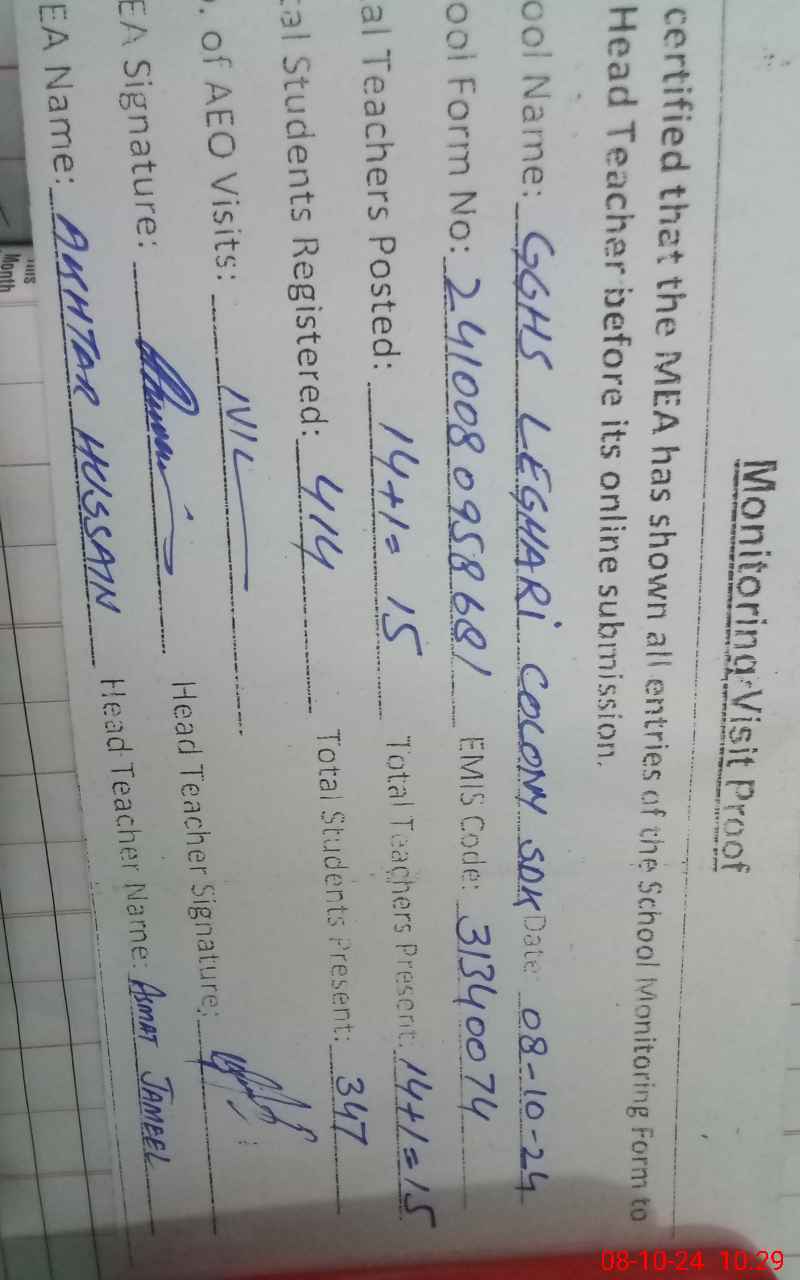 Monitoring Visit Proof
certified that the MEA has shown all entries of the School Monitoring Form to
Head Teacher before its online submission.
ool Name: GGHS LEGHARI COLONY SDK Date: 08-10-24
ool Form No: 2410080958681 EMIS Code: 31340074
al Teachers Posted: 14+1= 15 Total Teachers Present: 14+1=15
al Students Registered: 414 Total Students Present: 347
. of AEO Visits: NIL
EA Signature: Head Teacher Signature:
EA Name: AKHTAR HUSSAIN Head Teacher Name: ASMAT JAMEEL
This
Month
08-10-24 10:29